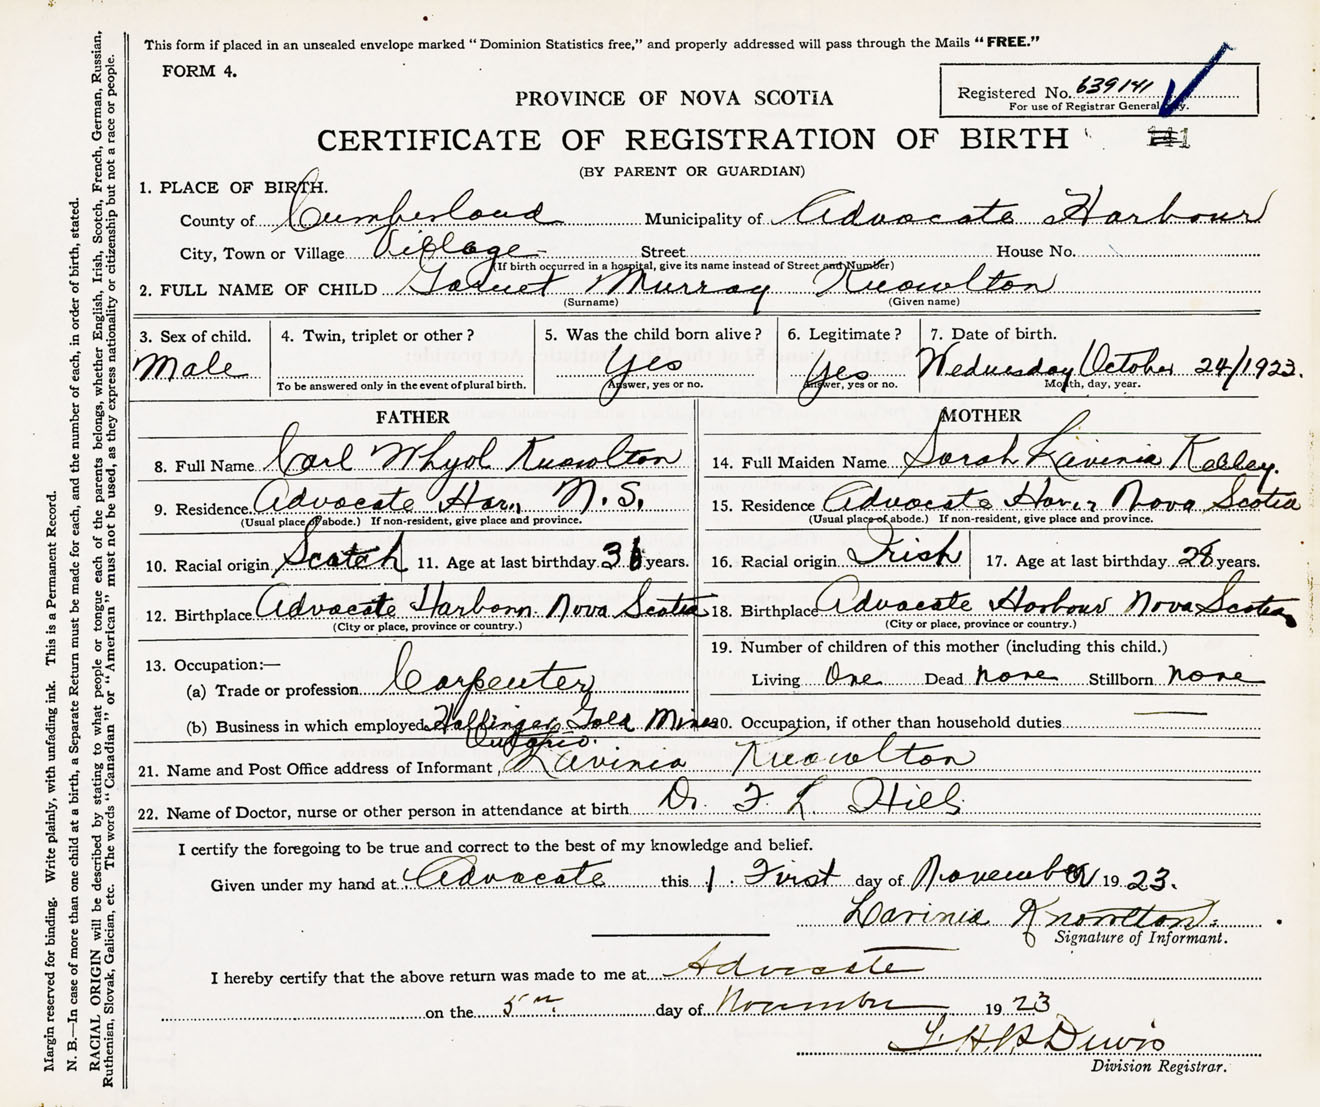 This form if placed in an unsealed envelope marked "Dominion Statistics free," and properly addressed will pass through the Mails "FREE."
FORM 4.
Registered No. 639141
For use of Registrar General only.
PROVINCE OF NOVA SCOTIA
CERTIFICATE OF REGISTRATION OF BIRTH
(BY PARENT OR GUARDIAN)
1. PLACE OF BIRTH.
County of Cumberland Municipality of Advocate Harbour
City, Town or Village Village Street House No.
(If birth occurred in a hospital, give its name instead of Street and Number)
2. FULL NAME OF CHILD Garnet Murray Knowlton
(Surname) (Given name)
3. Sex of child. 4. Twin, triplet or other? 5. Was the child born alive? 6. Legitimate? 7. Date of birth.
Male Yes Yes Wednesday October 24/1923.
To be answered only in the event of plural birth. Answer, yes or no. Answer, yes or no. Month, day, year.
FATHER MOTHER
8. Full Name Carl Knowlton 14. Full Maiden Name Sarah Lavinia Kelley.
9. Residence. Advocate Har., N.S. 15. Residence Advocate Nova Scotia
(Usual place of abode.) If non-resident, give place and province. (Usual place of abode.) If non-resident, give place and province.
10. Racial origin Scotch 11. Age at last birthday 36 years. 16. Racial origin Irish 17. Age at last birthday 28 years.
12. Birthplace Advocate Harbour Nova Scotia 18. Birthplace Advocate Harbour Nova Scotia
(City or place, province or country.) (City or place, province or country.)
13. Occupation:— 19. Number of children of this mother (including this child.)
(a) Trade or profession Carpenter Living One Dead none Stillborn none
(b) Business in which employed Hollinger Gold Mines 20. Occupation, if other than household duties
Ontario.
21. Name and Post Office address of Informant, Lavinia Knowlton
22. Name of Doctor, nurse or other person in attendance at birth Dr. F. L. Hill
I certify the foregoing to be true and correct to the best of my knowledge and belief.
Given under my hand at Advocate this 1. First day of November 1923.
Lavinia Knowlton.
Signature of Informant.
I hereby certify that the above return was made to me at Advocate
on the 5th day of November 1923
Dewis
Division Registrar.
Margin reserved for binding. Write plainly, with unfading ink. This is a Permanent Record.
N. B.—In case of more than one child at a birth, a Separate Return must be made for each, and the number of each, in order of birth, stated.
RACIAL ORIGIN will be described by stating to what people or tongue each of the parents belongs, whether English, Irish, Scotch, French, German, Russian,
Ruthenian, Slovak, Galician, etc. The words "Canadian" or "American" must not be used, as they express nationality or citizenship but not a race or people.